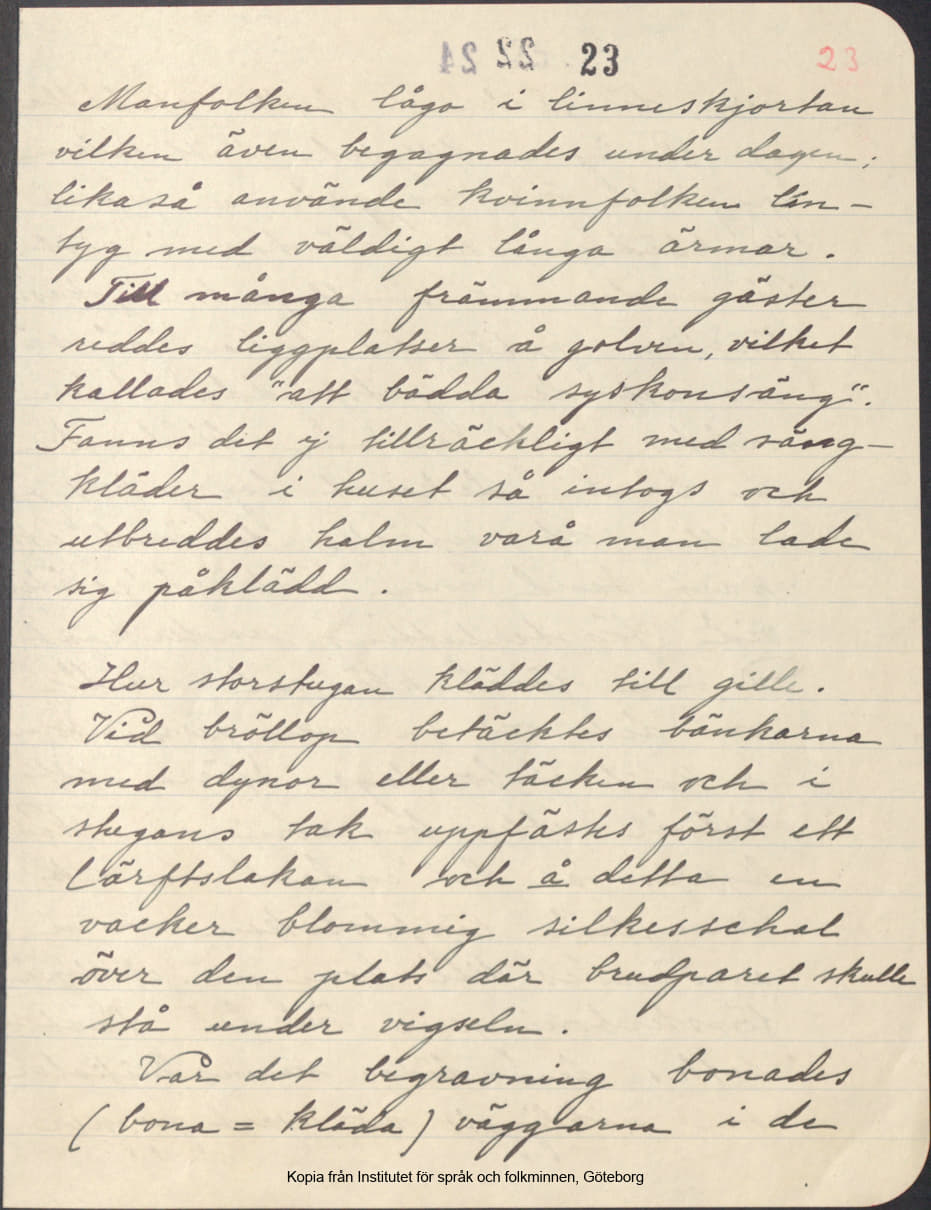 23 23
Manfolken lågo i linneskjortan
vilken även begagnades under dagen;
likaså använde kvinnfolken lin-
tyg med väldigt långa ärmar.
Till många främmande gäster
reddes liggplatser å golven, vilket
kallades "att bädda syskonsäng".
Fanns det ej tillräckligt med säng-
kläder i huset så intogs och
utbreddes halm varå man lade
sig påklädd.
Hur storstugan kläddes till gille.
Vid bröllop betäcktes bänkarna
med dynor eller täcken och i
stugans tak uppfästes först ett
lärftslakan och å detta en
vacker blommig silkesschal
över den plats där brudparet skulle
stå under vigseln.
Var det begravning bonades
(bona = kläda) väggarna i de
Kopia från Institutet för språk och folkminnen, Göteborg